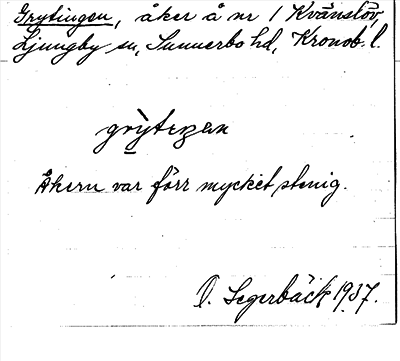 Grytingen, åker å nr 1 Kvänslöv,
Ljungby sn, Sunnerbo hd, Kronob. l.
Åkern var förr mycket stenig.
O. Segerbäck 1937.